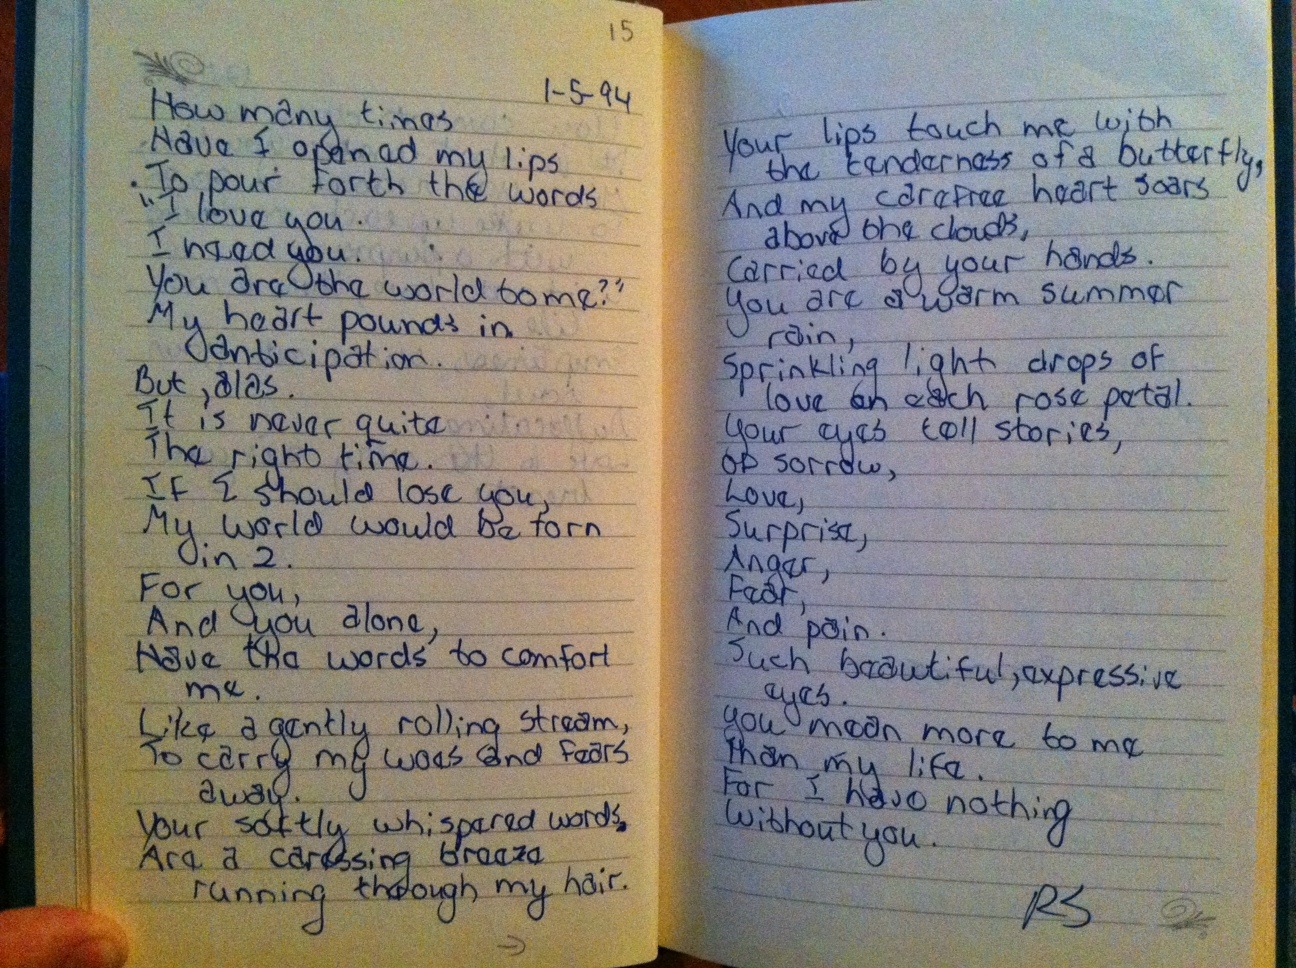 15
1-5-94
How many times
Have I opened my lips
To pour forth the words
"I love you.
I need you.
You are the world to me?"
My heart pounds in
anticipation.
But, alas.
It is never quite
The right time.
If I should lose you,
My world would be torn
in 2.
For you,
And you alone,
Have the words to comfort
me.
Like a gently rolling stream,
To carry my woes and fears
away.
Your softly whispered words,
Are a caressing breeze
running through my hair.
Your lips touch me with
the tenderness of a butterfly,
And my carefree heart soars
above the clouds,
Carried by your hands.
You are a warm summer
rain,
Sprinkling light drops of
love on each rose petal.
Your eyes tell stories,
of sorrow,
Love,
Surprise,
Anger,
Fear,
And pain.
Such beautiful, expressive
eyes.
You mean more to me
Than my life.
For I have nothing
Without you.
RS